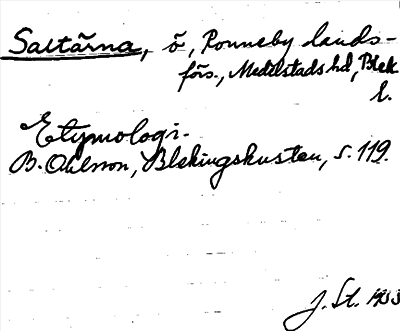 Saltärna, ö, Ronneby lands-
förs., Medelstads hd, Blek.
l.
Etymologi.
B. Ohlsson, Blekingskusten, s. 119.
J. St. 1933